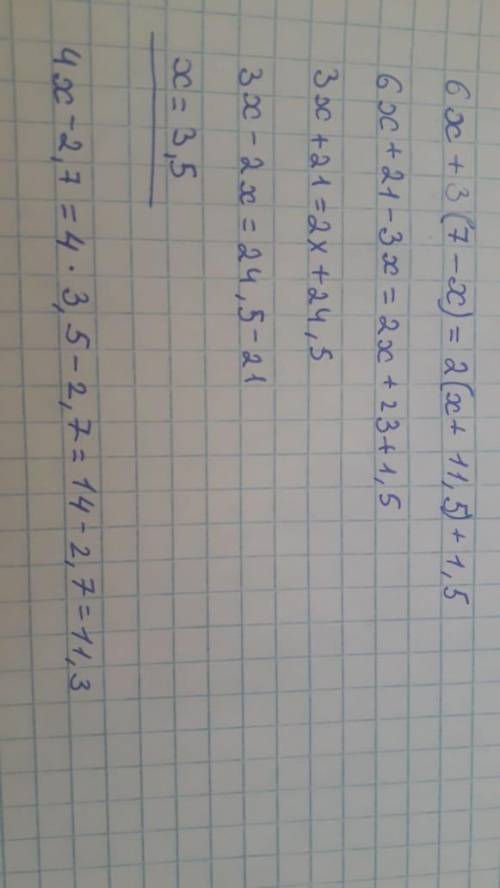 6x + 3(7 - x) = 2(x + 11,5) + 1,5
6x + 21 - 3x = 2x + 23 + 1,5
3x + 21 = 2x + 24,5
3x - 2x = 24,5 - 21
x = 3,5
4x - 2,7 = 4 · 3,5 - 2,7 = 14 - 2,7 = 11,3